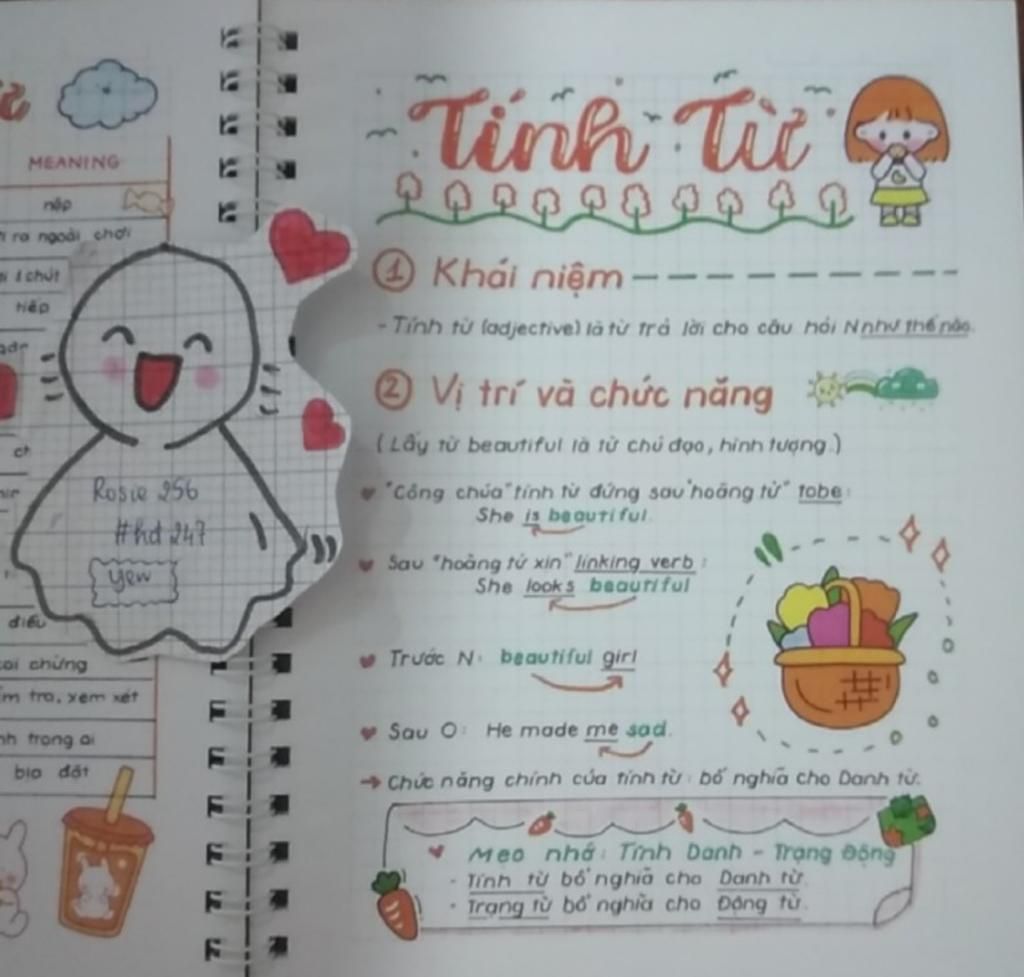 MEANING
nộp
ra ngoài chơi
1 chút
tiếp
điều
coi chừng
xem xét
trọng ai
bịa đặt
Rosie 256
#hd 247
yew
Tính Từ
1 Khái niệm
- Tính từ (adjective) là từ trả lời cho câu hỏi N như thế nào.
2 Vị trí và chức năng
(Lấy từ beautiful là từ chủ đạo, hình tượng.)
"Công chúa" tính từ đứng sau "hoàng tử" tobe:
She is beautiful.
Sau "hoàng tử xin" linking verb:
She looks beautiful
Trước N: beautiful girl
Sau O: He made me sad.
→ Chức năng chính của tính từ: bổ nghĩa cho Danh từ.
Mẹo nhớ: Tính Danh - Trạng Động
- Tính từ bổ nghĩa cho Danh từ.
- Trạng từ bổ nghĩa cho Động từ.